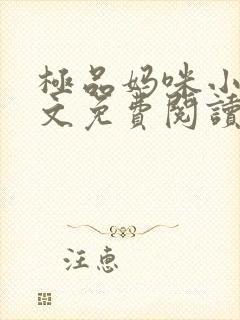 極品妈咪小
文免費閱讀
汪惠